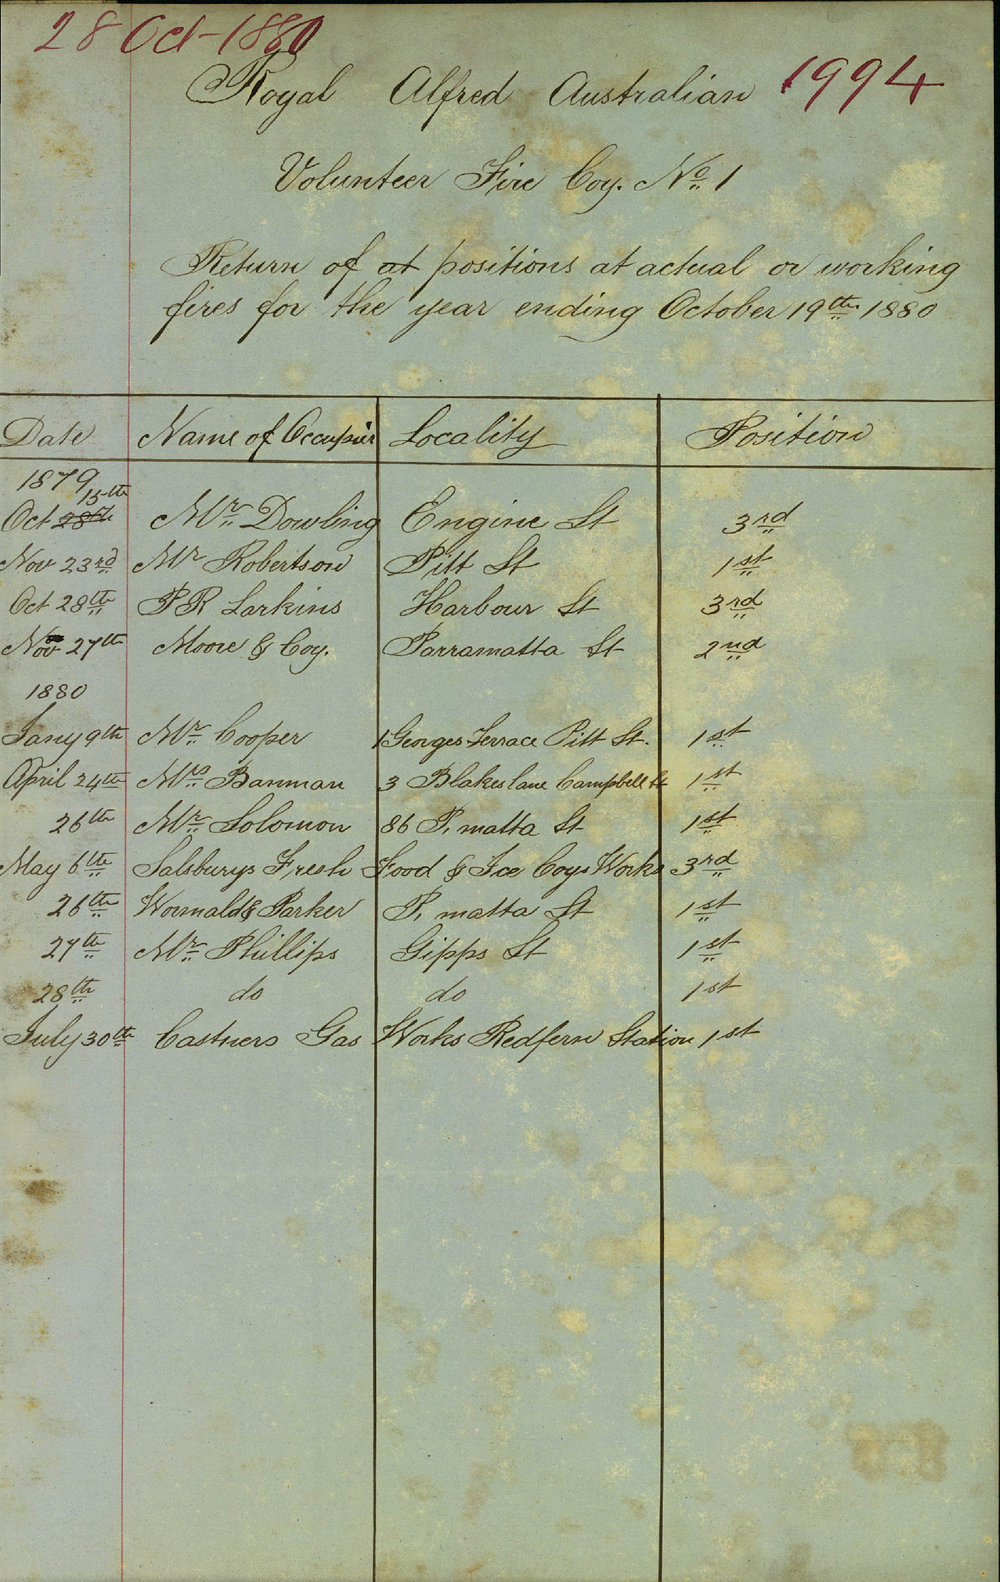 28 Oct-1880
Royal Alfred Australian 1994
Volunteer Fire Coy. No. 1
Return of at positions at actual or working
fires for the year ending October 19th 1880
Date Name of Occupier Locality Position
1879
15th
Oct 28th Mr. Dowling Engine St 3rd
Nov 23rd Mr Robertson Pitt St 1st
Oct 28th P R Larkins Harbour St 3rd
Nov 27th Moore & Coy. Parramatta St 2nd
1880
Jany 9th Mr. Cooper 1 Georges Terrace Pitt St. 1st
April 24th Mrs. Banman 3 Blakes lane Campbell St 1st
26th Mr. Solomon 86 P. matta St 1st
May 6th Salsburys Fresh Food & Ice Coys Works 3rd
26th Wormald & Parker P. matta St 1st
27th Mr. Phillips Gipps St 1st
28th do do 1st
July 30th Castners Gas Works Redfern Station 1st